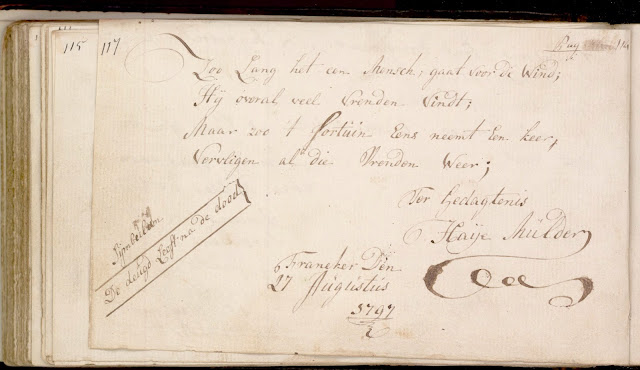 115
117
114
Zoo Lang het een Mensch, gaat voor de Wind;
Hÿ overal veel Vrenden Vindt;
Maar zoo 't Fortuin Eens neemt Een keer,
Vervligen al die Vrenden Weer;
Ter Gedagtenis
Haije Mülder
Sijmbolum
De deugd Leeft na de dood
Franeker Den
27 Augustus
1797